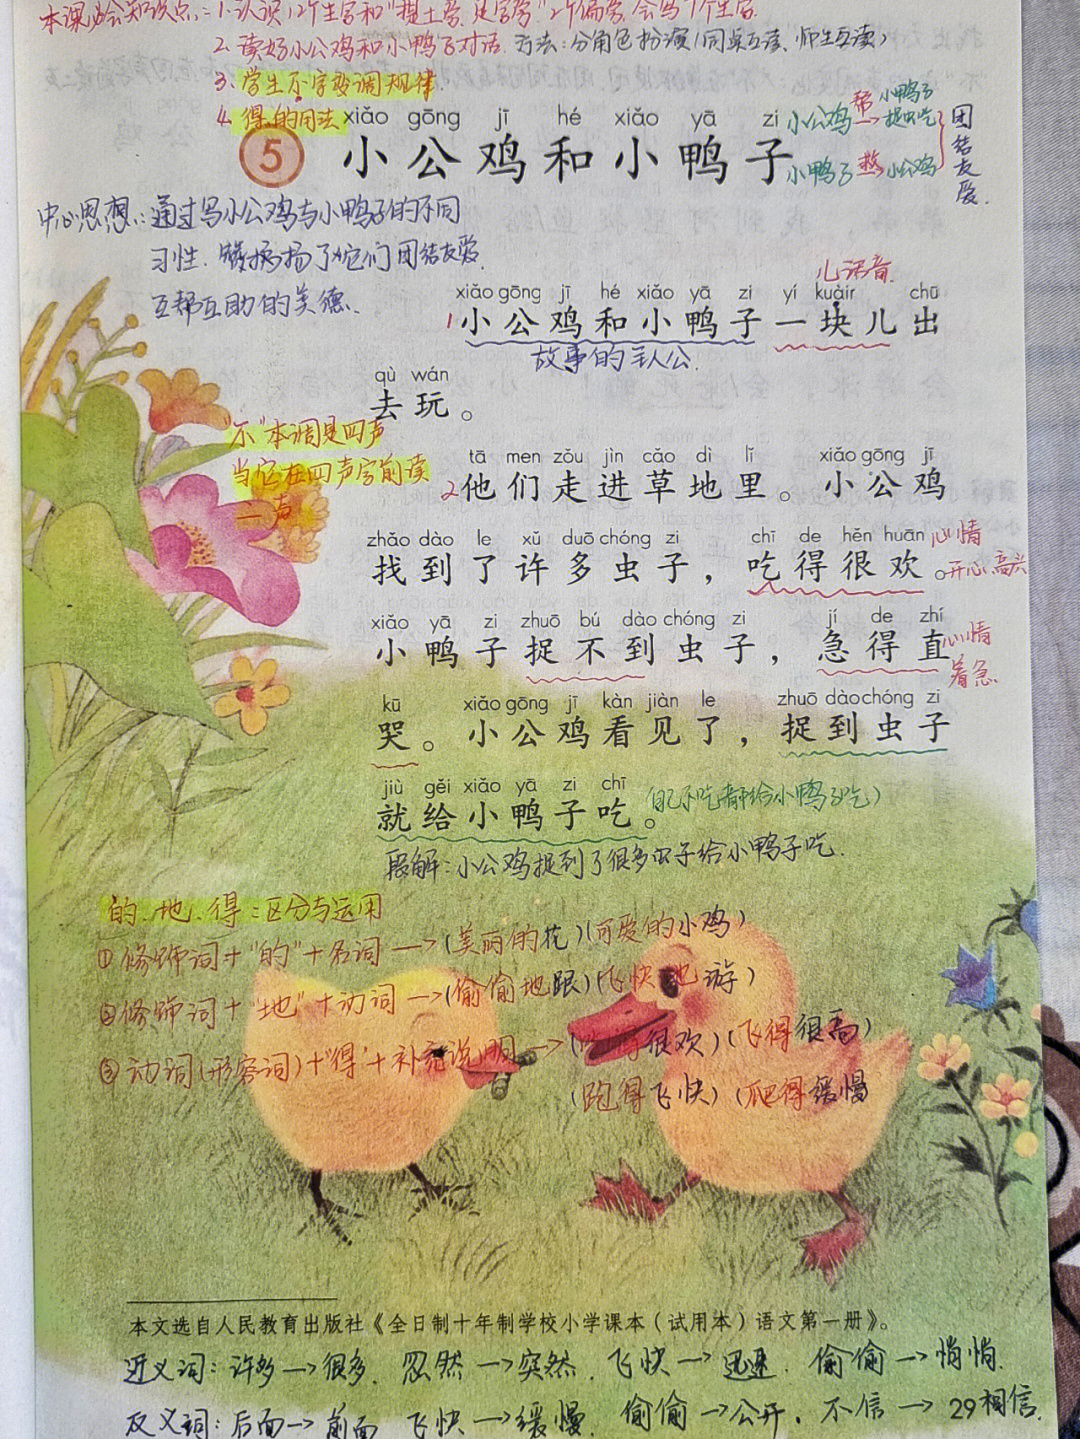 本课必会知识点:1.认识12个生字和"提土旁、足字旁"2个偏旁,会写7个生字.
2.读好小公鸡和小鸭子对话.方法:分角色扮演(同桌互读、师生互读)
3.学生不字变调规律.
4.得的用法
xiǎo gōng jī hé xiǎo yā zi
5 小公鸡和小鸭子
小公鸡 帮→ 小鸭子捉虫吃
小鸭子 救→ 小公鸡
团结友爱.
中心思想:通过写小公鸡与小鸭子的不同
习性.
扬了它们团结友爱
互帮互助的美德.
儿话音.
xiǎo gōng jī hé xiǎo yā zi yí kuàir chū
1 小公鸡和小鸭子一块儿出
故事的主人公.
qù wán
去玩。
"不"本调是四声
当它在四声字前读
一声
tā men zǒu jìn cǎo dì lǐ xiǎo gōng jī
2 他们走进草地里。小公鸡
zhǎo dào le xǔ duō chóng zi chī de hěn huān
找到了许多虫子,吃得很欢。
心情
开心 高兴
xiǎo yā zi zhuō bú dào chóng zi jí de zhí
小鸭子捉不到虫子,急得直
心情
着急
kū xiǎo gōng jī kàn jiàn le zhuō dào chóng zi
哭。小公鸡看见了,捉到虫子
jiù gěi xiǎo yā zi chī
就给小鸭子吃。
(自己不吃都给小鸭子吃)
理解:小公鸡捉到了很多虫子给小鸭子吃.
的、地、得:区分与运用
①修饰词+"的"+名词→(美丽的花)(可爱的小鸡)
②修饰词+"地"+动词→(偷偷地跟)(飞快地游)
③动词(形容词)+"得"+补充说明→(吃得很欢)(飞得很高)
(跑得飞快)(爬得缓慢
本文选自人民教育出版社《全日制十年制学校小学课本(试用本)语文第一册》。
近义词:许多→很多.忽然→突然.飞快→迅速.偷偷→悄悄.
反义词:后面→前面 飞快→缓慢.偷偷→公开.不信→相信.
29